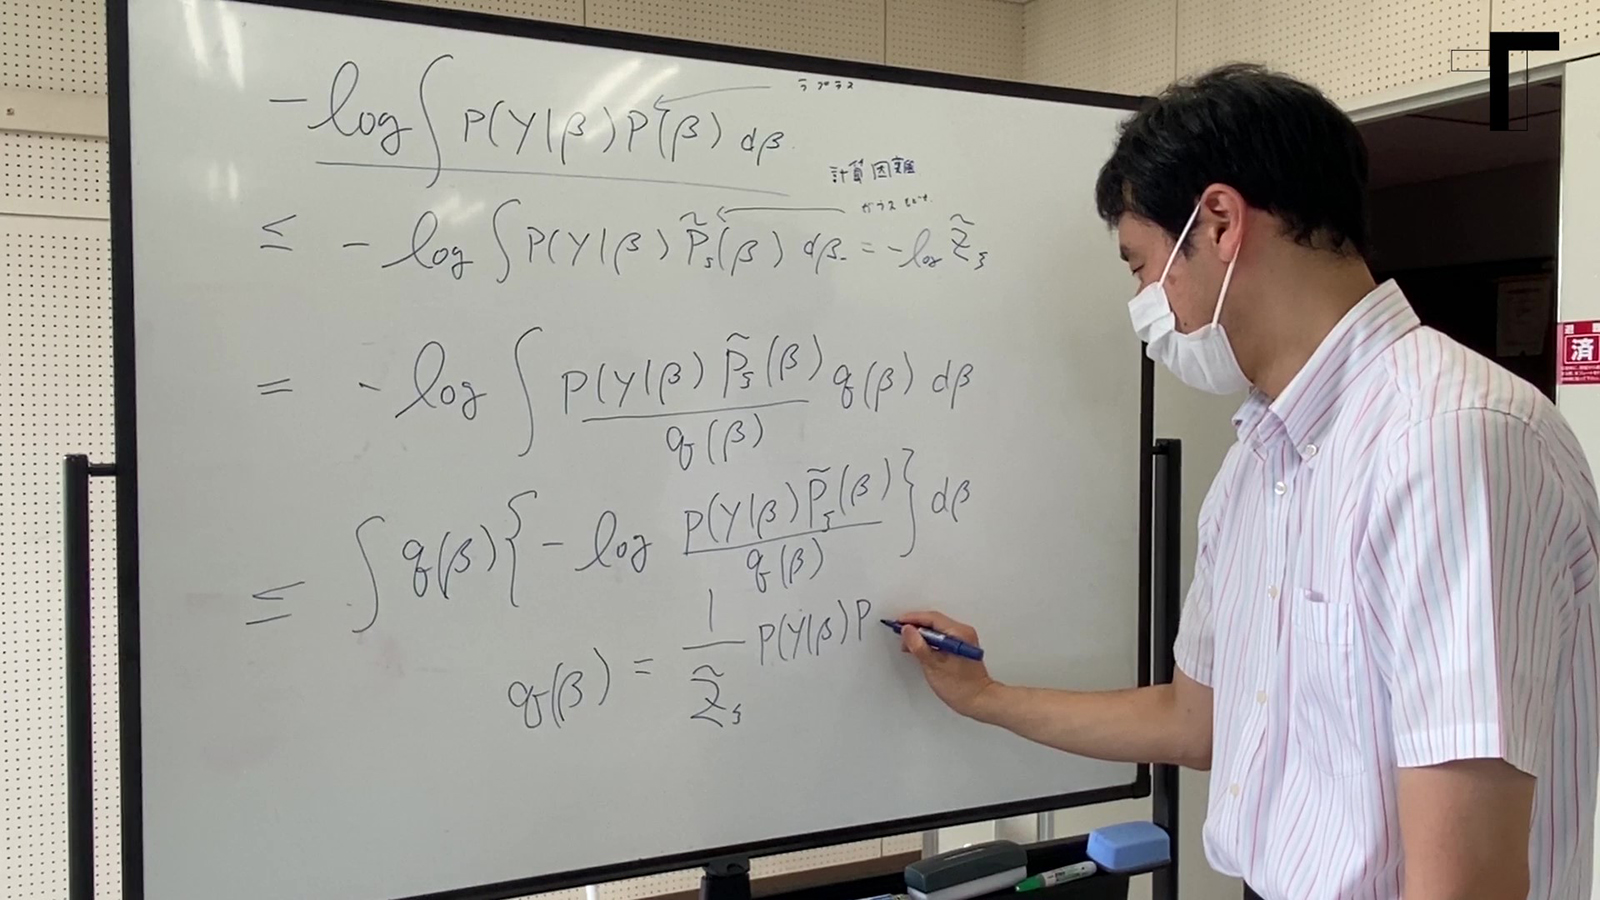 −log∫P(Y|β)P(β)dβ
ラプラス
計算困難
≤ −log∫P(Y|β)P̃ξ(β)dβ = −log Z̃ξ
= −log∫P(Y|β)P̃ξ(β)/q(β) q(β)dβ
≤ ∫q(β){−log P(Y|β)P̃ξ(β)/q(β)}dβ
q(β) = 1/Z̃ξ P(Y|β)P
済